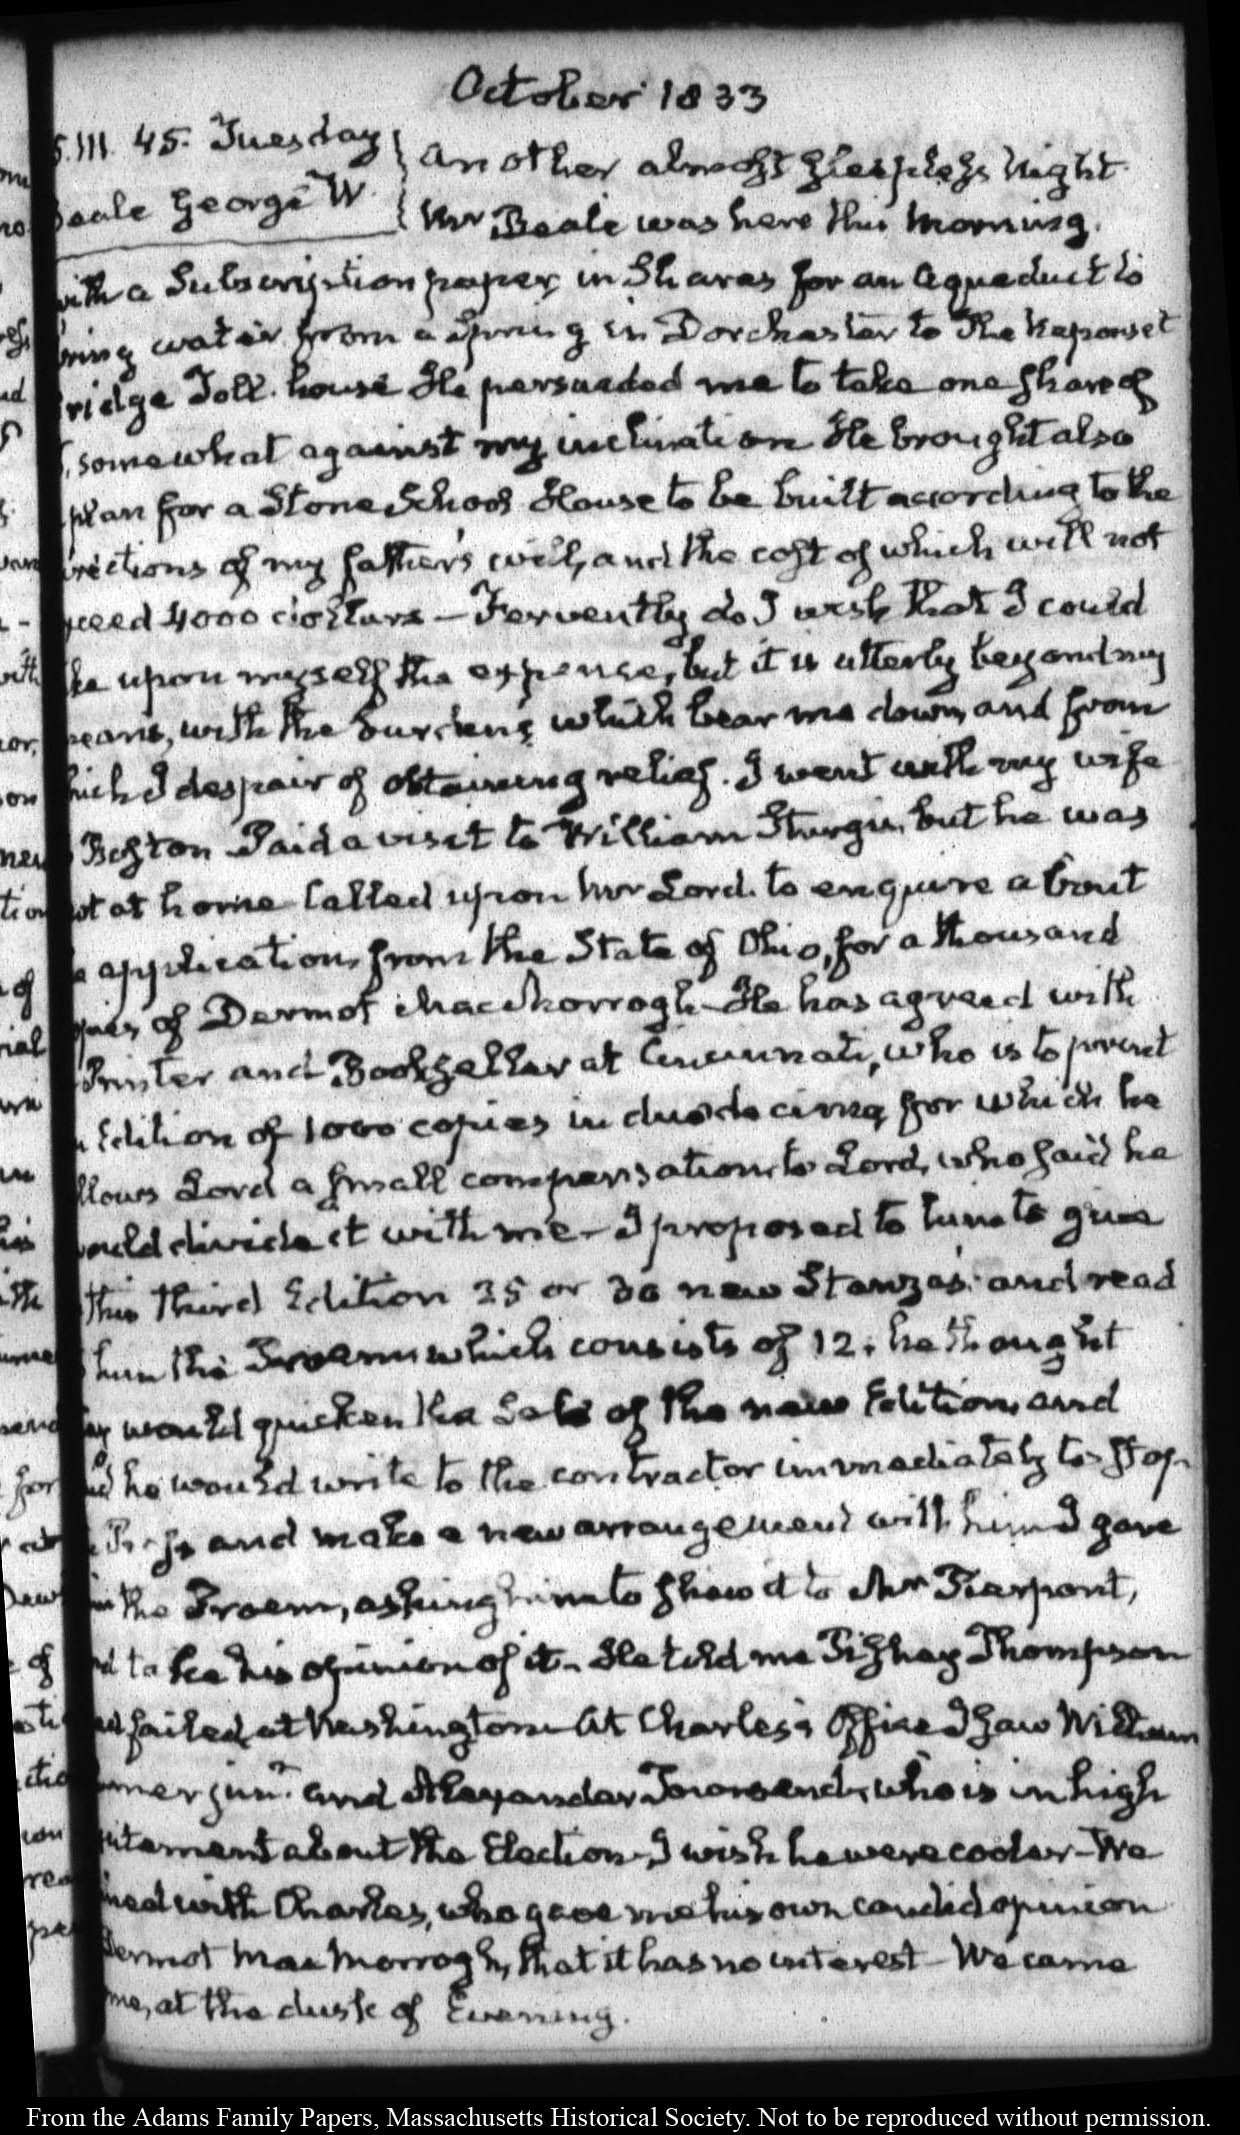 October 1833
5. III. 45. Tuesday
Beale George W.
Another almost sleepless Night.
Mr Beale was here this Morning.
with a Subscription paper, in Shares for an Aqueduct to
bring water from a Spring in Dorchester to the Neponset
Bridge Toll-house He persuaded me to take one share of
somewhat against my inclination He brought also
plan for a Stone School House to be built according to the
directions of my father's will, and the cost of which will not
exceed 4000 dollars — Fervently do I wish that I could
take upon myself the expense, but it is utterly beyond my
means, with the burdens which bear me down, and from
which I despair of obtaining relief. I went with my wife
Boston Paid a visit to William Sturgis, but he was
not at home Called upon Mr Lord. to enquire about
applications from the State of Ohio, for a thousand
copies of Dermot MacMorrogh — He has agreed with
Printer and Bookseller at Cincinnati, who is to print
Edition of 1000 copies in duodecimo, for which he
allows Lord a small compensation to Lord, who said he
would divide it with me — I proposed to him to give
this third Edition 25 or 30 new Stanzas: and read
him the Proem which consists of 12. he thought
they would quicken the Sale of the new Edition, and
said he would write to the contractor immediately to stop
Press and make a new arrangement with him I gave
him the Proem, asking him to shew it to Mr Pierpont,
and take his opinion of it. He told me Pishey Thompson
had failed, at Washington — At Charles's Office I saw William
jun.r and Alexander Townsend, who is in high
excitement about the Election — I wish he were cooler — We
dined with Charles, who gave me his own candid opinion
Dermot MacMorrogh, that it has no interest — We came
home, at the dusk of Evening.
From the Adams Family Papers, Massachusetts Historical Society. Not to be reproduced without permission.